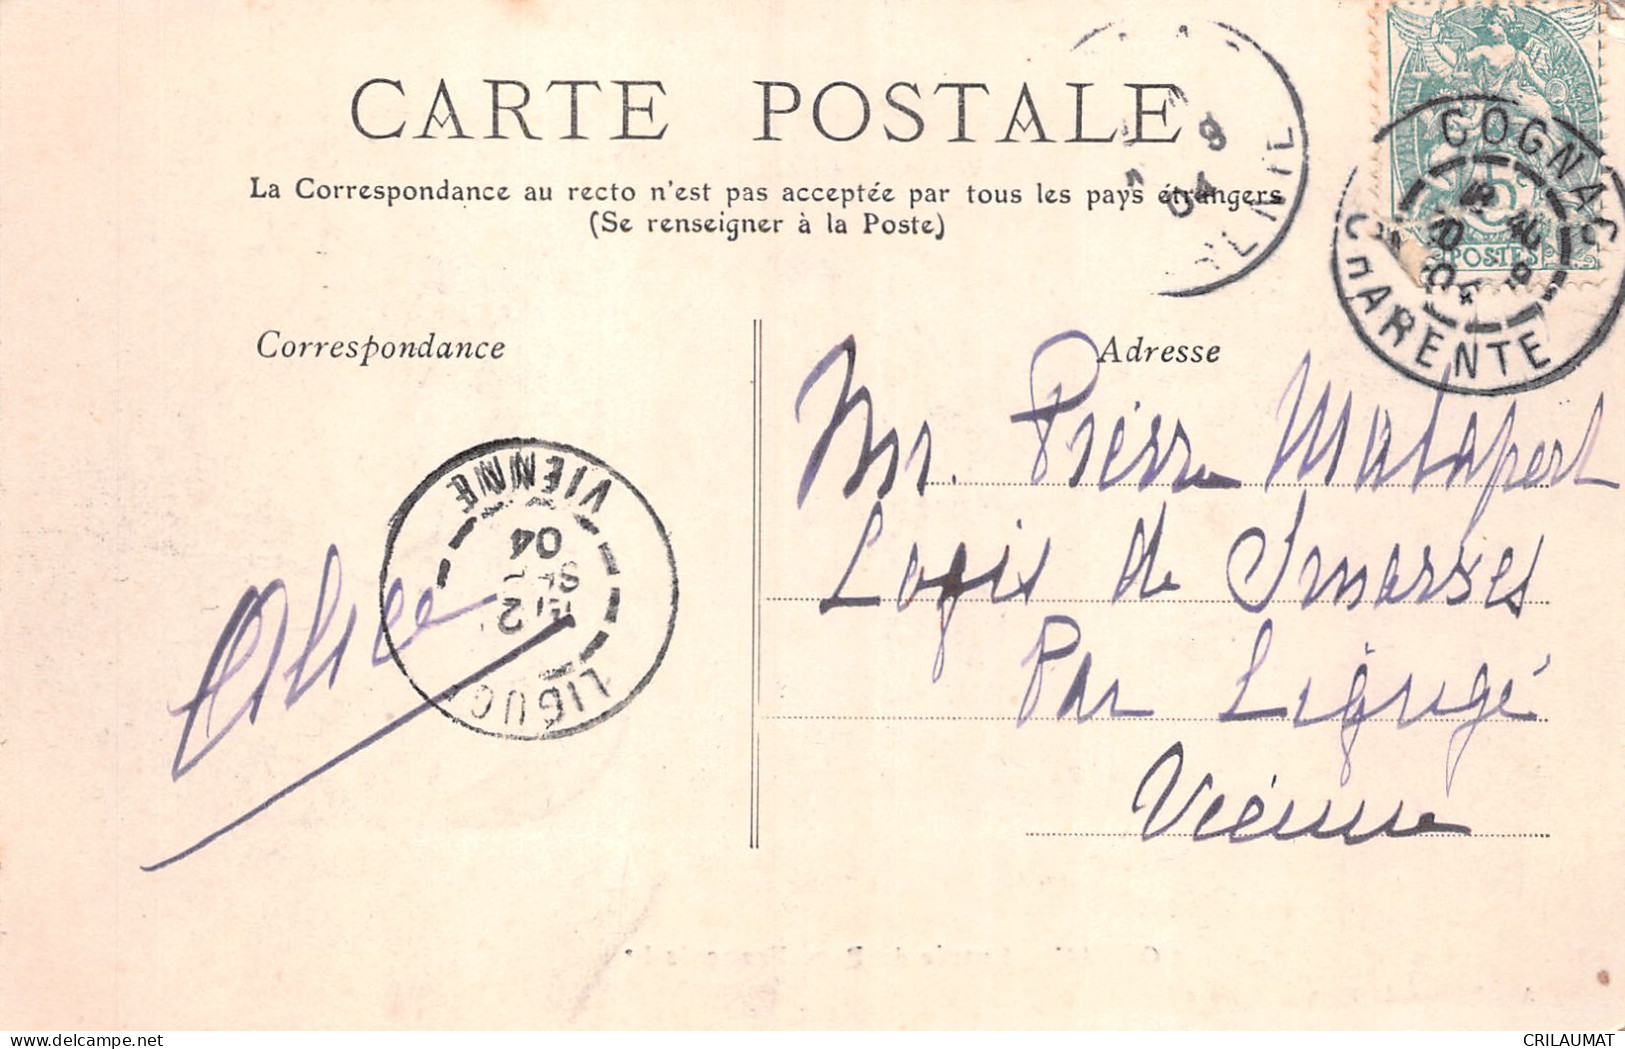 CARTE POSTALE
La Correspondance au recto n'est pas acceptée par tous les pays étrangers
(Se renseigner à la Poste)
Correspondance
Adresse
COGNAC
CHARENTE
5c
POSTES
9
04
Mr. Pierre Malapert
Logis de Smarves
Par Ligugé
Vienne
VIENNE
04
LIGUG
Alice
CRILAUMAT